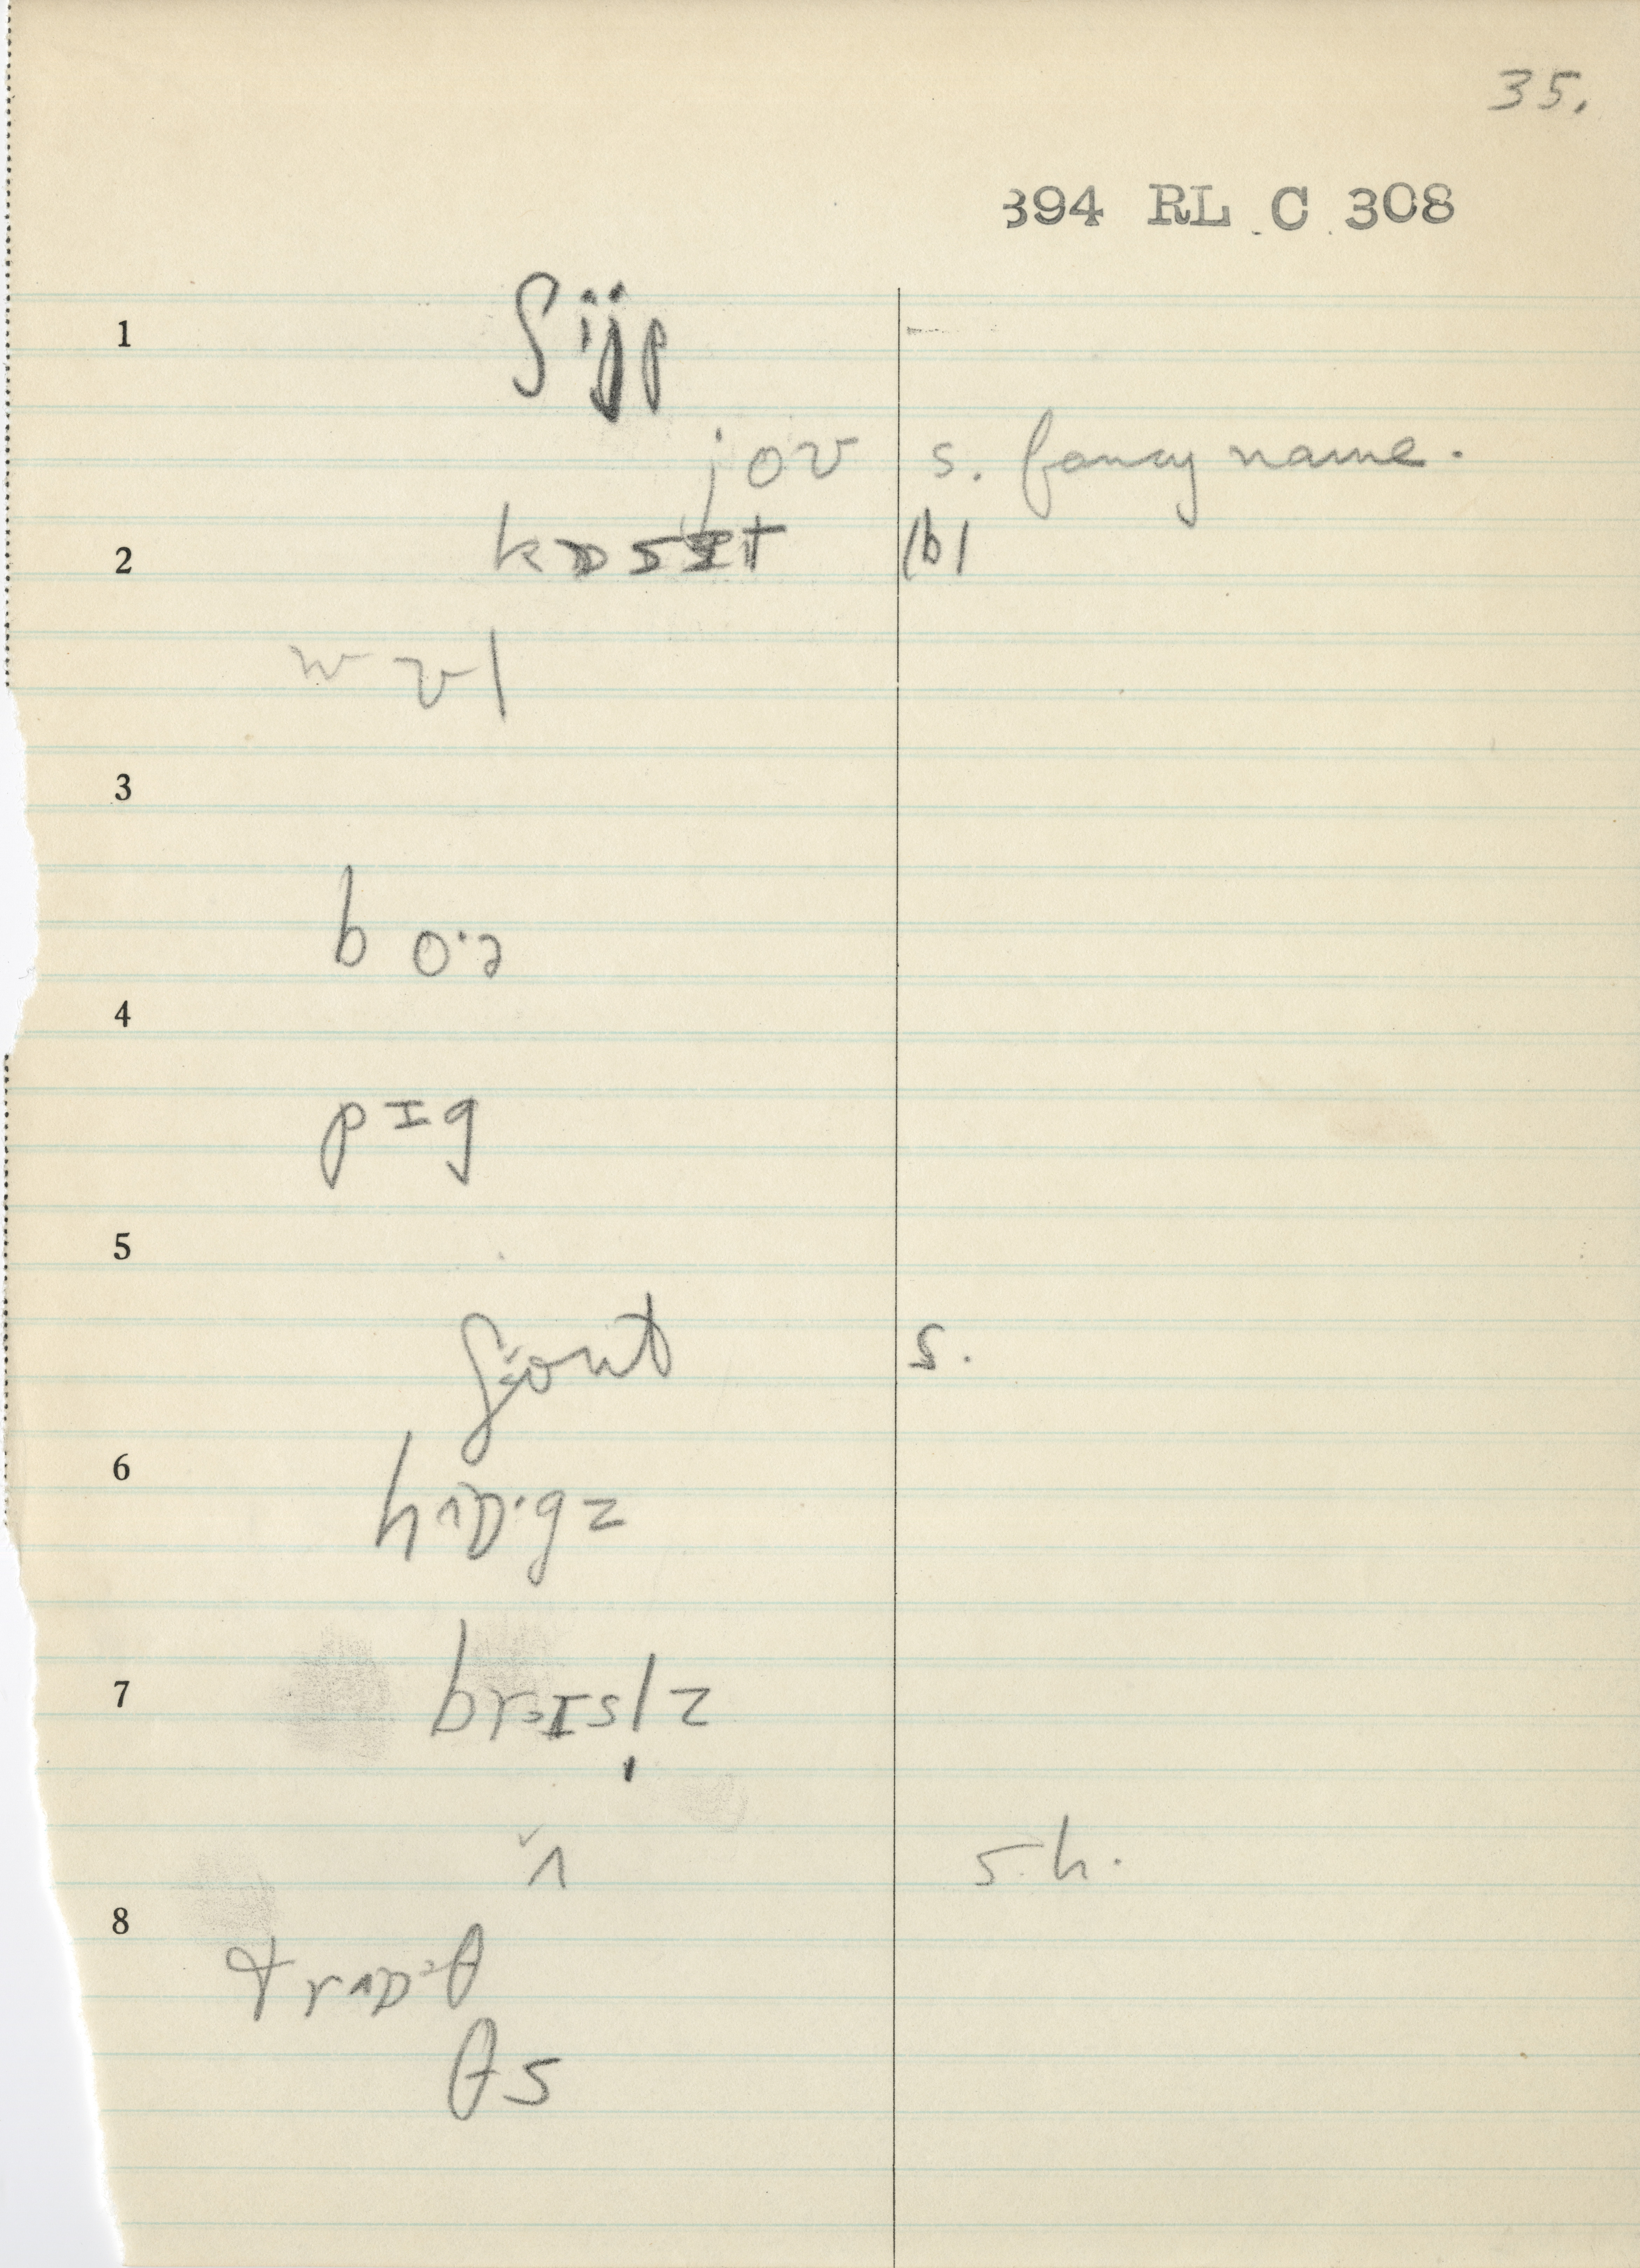 35.
394 RL C 308
1 ʃijp
jov s. fancy name.
2 kɒsɪt (b)
wʊl
3
b o·ə
4
pɪg
5
s.
6
hʌɒ·gz
7 brɪsl̩z
s.h.
8
trʌɒ·θ
θs